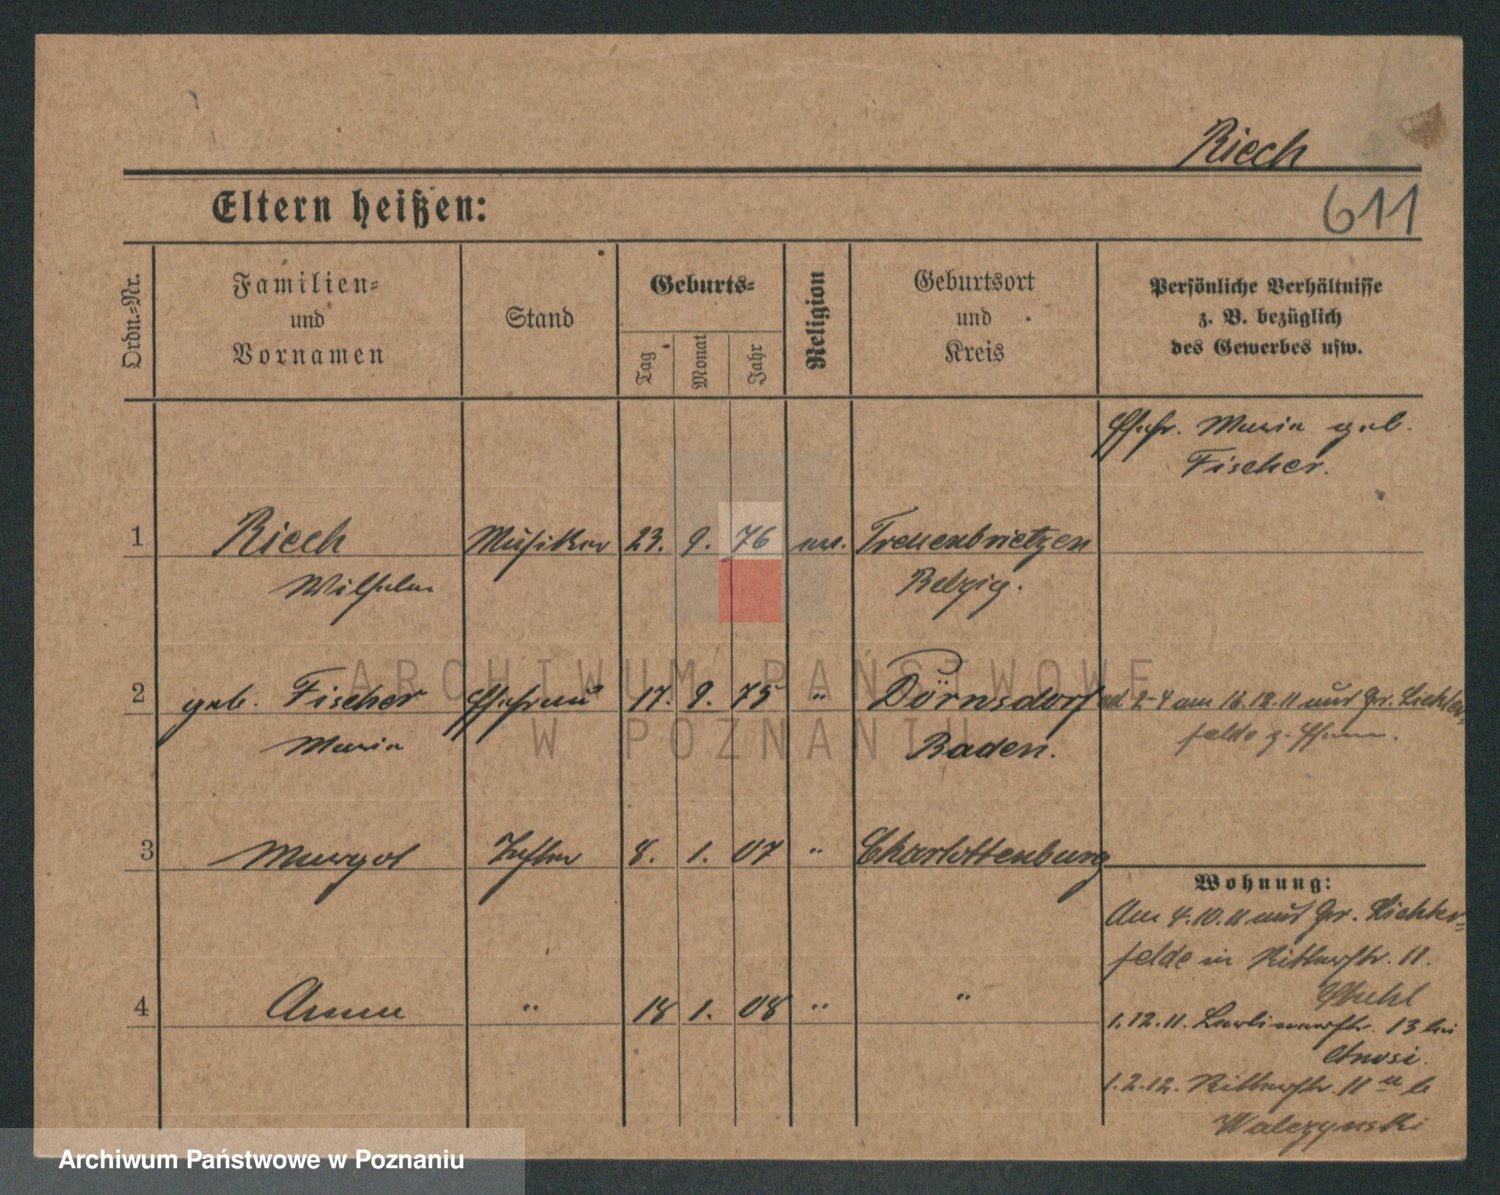 Riech
611
Eltern heißen:
Ordn.-Nr.
Familien-
und
Vornamen
Stand
Geburts-
Tag
Monat
Jahr
Religion
Geburtsort
und
Kreis
Persönliche Verhältnisse
z. B. bezüglich
des Gewerbes usw.
Ehefr. Maria geb.
Fischer.
1 Riech Musiker 23. 9. 76 ev. Treuenbrietzen
Wilhelm Belzig.
2 geb. Fischer Ehefrau 17. 9. 75 " Dörnsdorf
Maria Baden.
ad 2-4 am 16.12.11 aus Gr. Lichter-
felde z. Ehem.
3 Margot Tochter 8. 1. 07 " Charlottenburg
Wohnung:
Am 4.10.11 aus Gr. Lichter-
felde in Ritterstr. 11.
4 Anna " 18 1. 08 " "
1.12.11. Berlinerstr. 13 bei
1.2.12. Ritterstr. 11 b
Walczynski
ARCHIWUM PAŃSTWOWE
W POZNANIU
Archiwum Państwowe w Poznaniu